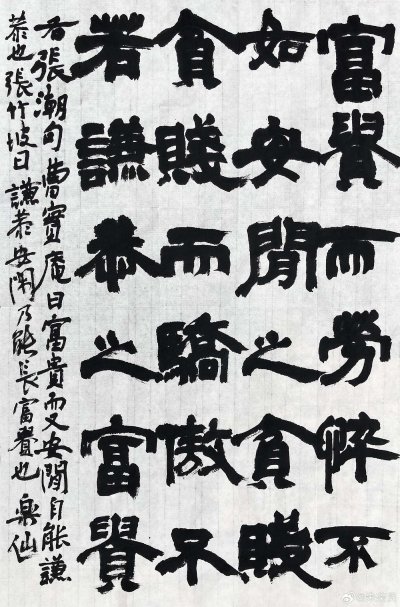 富貴而勞悴不
如安閒之貧賤
貧賤而驕傲不
若謙恭之富貴
右張潮句曹實庵曰富貴而又安閒自能謙
恭也張竹坡曰謙恭安閑乃能長富貴也 樂仙